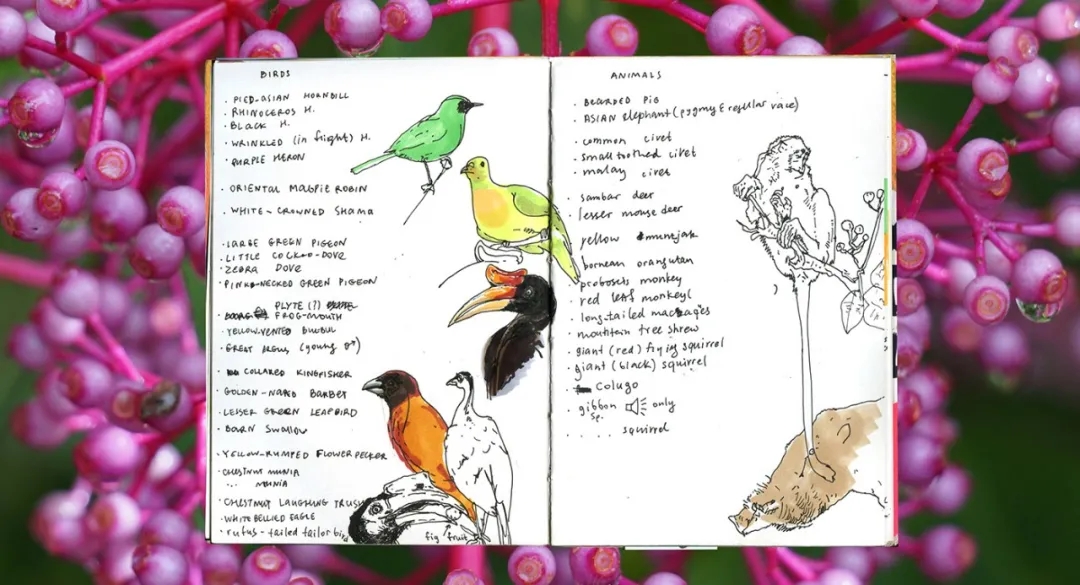 BIRDS
· PIED-ASIAN HORNBILL
· RHINOCEROS H.
· BLACK H.
· WRINKLED (in flight) H.
· PURPLE HERON
· ORIENTAL MAGPIE ROBIN
· WHITE-CROWNED SHAMA
· LARGE GREEN PIGEON
· LITTLE CUCKOO-DOVE
· ZEBRA DOVE
· PINK-NECKED GREEN PIGEON
PLYTE (?)
FROG-MOUTH
· YELLOW-VENTED BULBUL
· GREAT (young ♂)
COLLARED KINGFISHER
· GOLDEN-NAPED BARBET
· LESSER GREEN LEAFBIRD
· BARN SWALLOW
· YELLOW-RUMPED FLOWERPECKER
· CHESTNUT MUNIA
· .. MUNIA
· CHESTNUT LAUGHING TRUSH
· WHITEBELLIED EAGLE
· rufus-tailed tailorbird
fig fruit
ANIMALS
· BEARDED PIG
· ASIAN elephant (pygmy & regular race)
· common civet
· small toothed civet
· malay civet
· sambar deer
· lesser mouse deer
· yellow muntjak
· bornean orangutan
· proboscis monkey
· red leaf monkey
· long-tailed macaques
· mountain tree shrew
· giant (red) flying squirrel
· giant (black) squirrel
colugo
· gibbon only
sp.
· .... squirrel